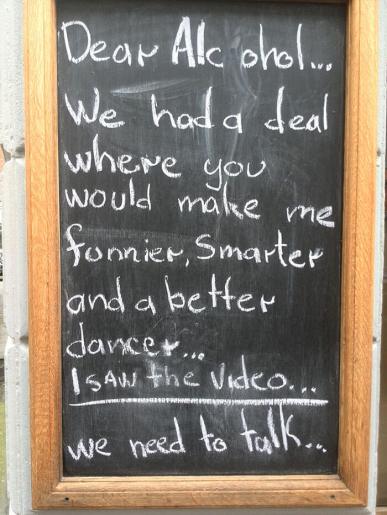 Dear Alcohol...
We had a deal
where you
would make me
fonnier, Smarter
and a better
dancer...
I SAW the Video...
we need to talk...